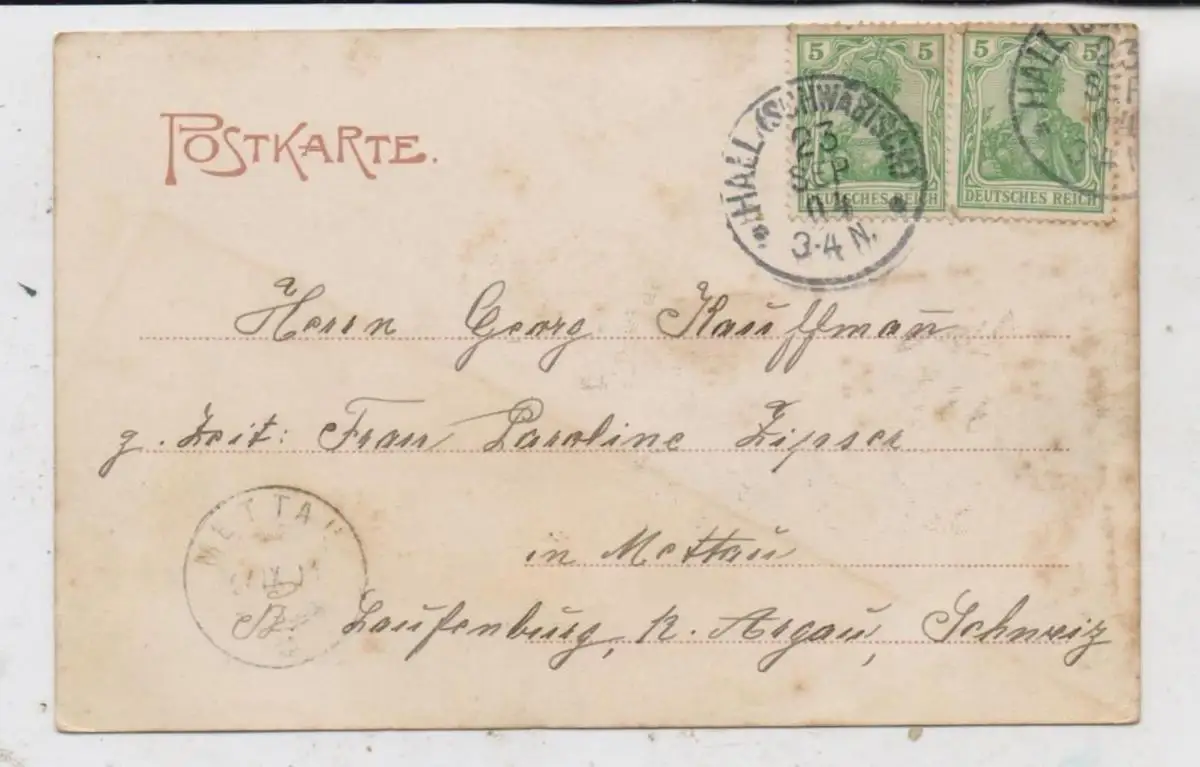 POSTKARTE.
5 5
DEUTSCHES REICH
5 5
DEUTSCHES REICH
HALL (SCHWÄBISCH)
23
SEP
04
3-4 N.
HALL
23
SEP
04
3-4 N.
Herrn Georg Kauffman̄
z. Zeit: Frau Caroline Zipser
in Mettau
Laufenburg, K. Argau, Schweiz
METTAU